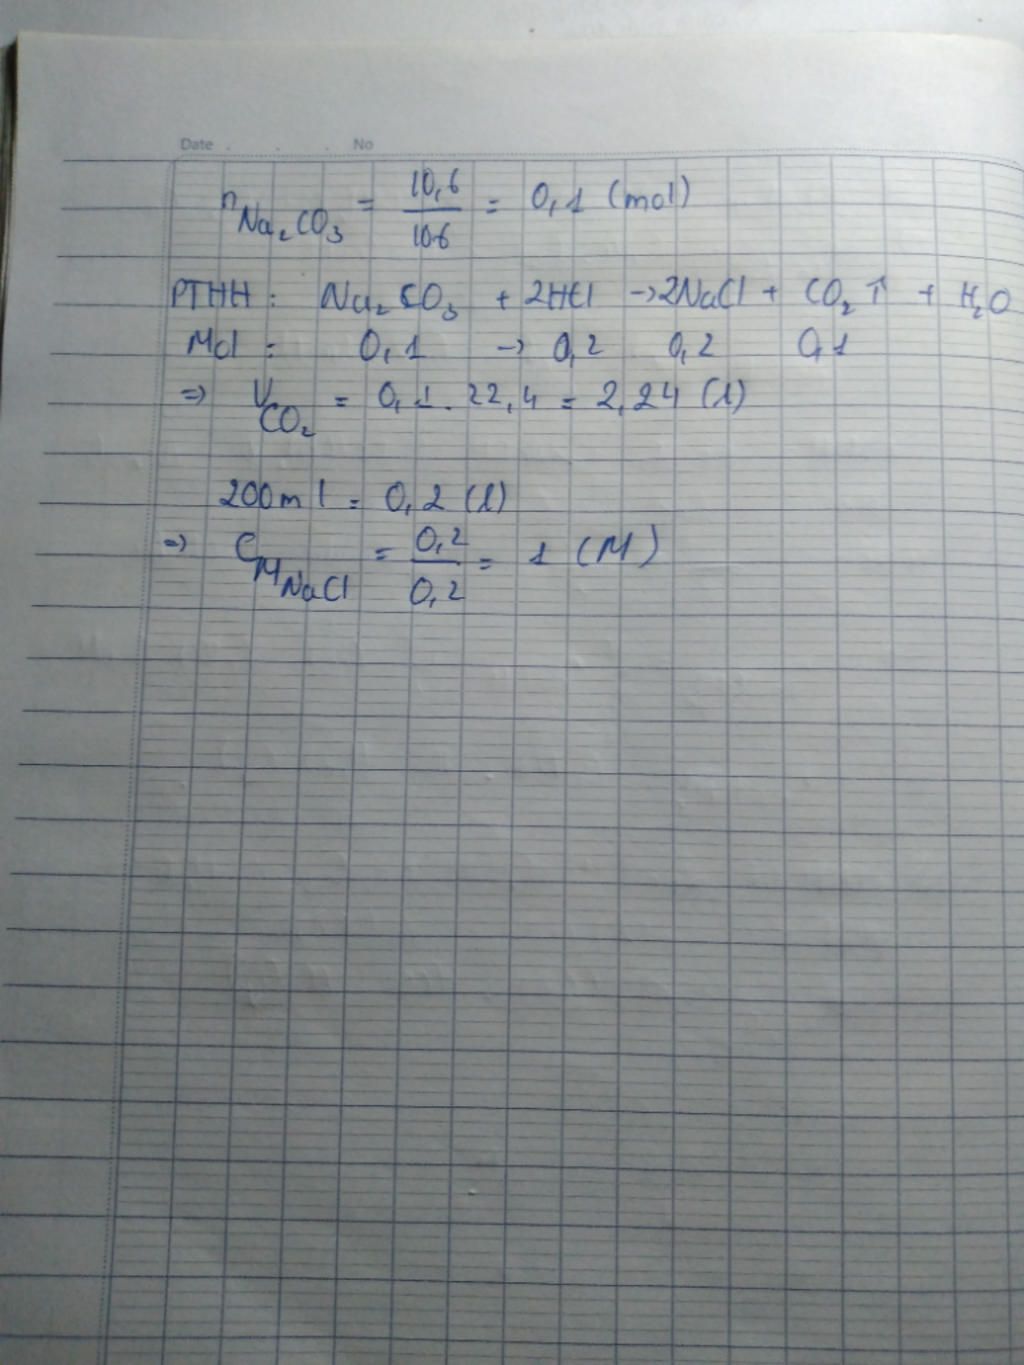 Date . . . No
n Na₂CO₃ = 10,6/106 = 0,1 (mol)
PTHH: Na₂CO₃ + 2HCl → 2NaCl + CO₂↑ + H₂O
Mol: 0,1 → 0,2 0,2 0,1
=> V CO₂ = 0,1. 22,4 = 2,24 (l)
200ml = 0,2 (l)
=> C M NaCl = 0,2/0,2 = 1 (M)